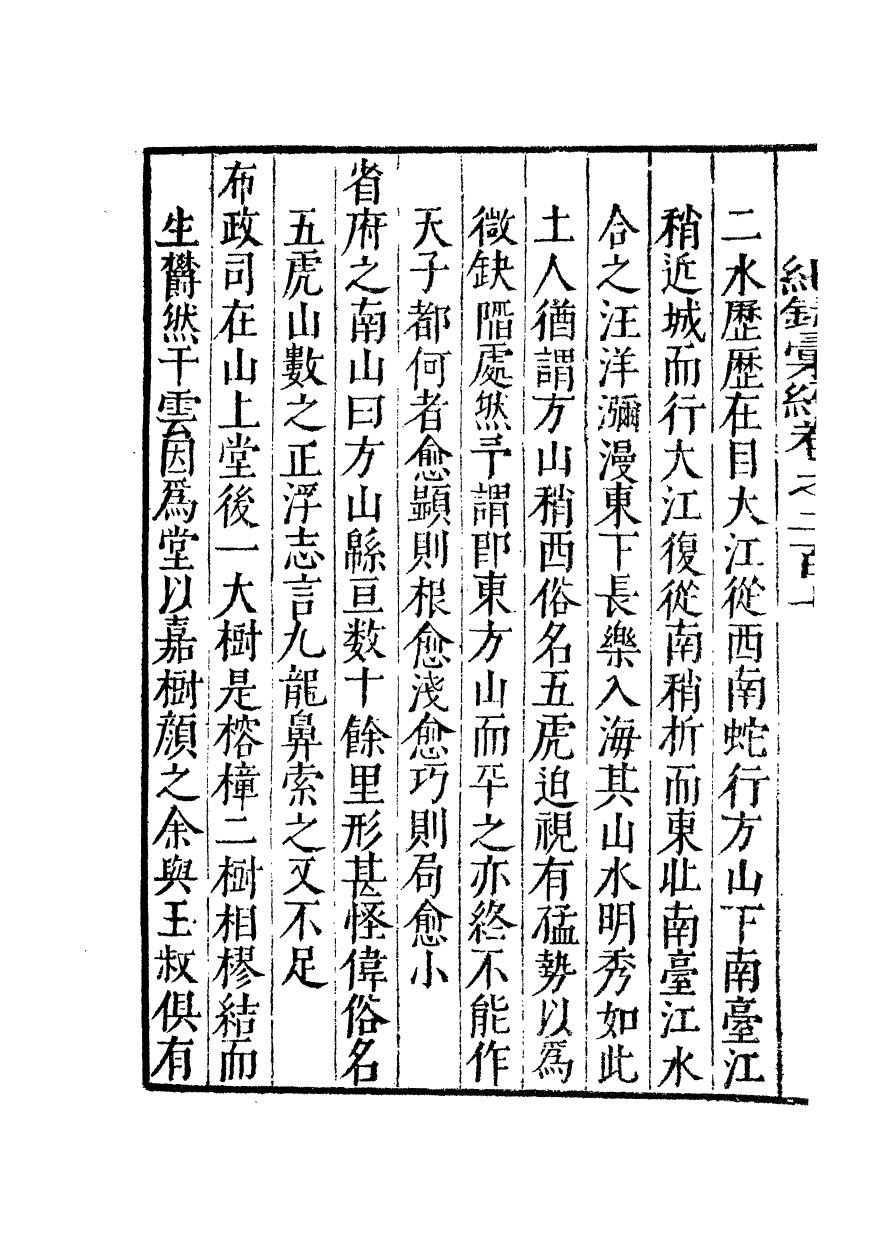 紀錄彙編卷之二百十
二水歷歷在目大江從西南蛇行方山下南臺江
稍近城而行大江復從南稍折而東北南臺江水
合之汪洋瀰漫東下長樂入海其山水明秀如此
土人猶謂方山稍西俗名五虎迫視有猛勢以爲
微缺陷處然予謂即東方山而平之亦終不能作
天子都何者愈顯則根愈淺愈巧則局愈小
省府之南山曰方山緜亘数十餘里形甚怪偉俗名
五虎山數之正浮志言九龍鼻索之又不足
布政司在山上堂後一大樹是榕樟二樹相樛結而
生欎然干雲因爲堂以嘉樹顔之余與王叔俱有